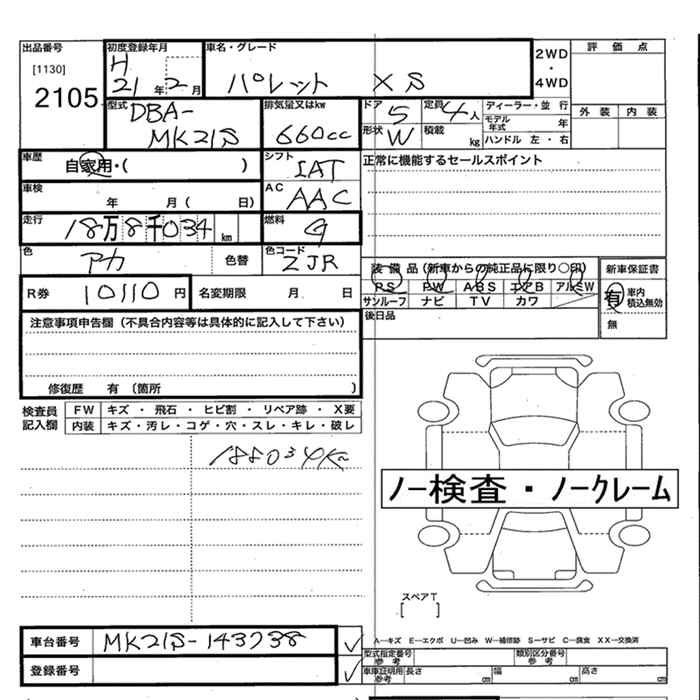 出品番号 初度登録年月 車名・グレード 2WD・4WD 評価点
[1130] H
2105 21年2月 パレット XS
型式 DBA-MK21S 排気量又はkw 660cc ドア 5 定員 4人 ディーラー・並行 外装 内装
形状 W 積載 kg モデル年式 年
ハンドル 左・右
車歴 自家用・( ) シフト IAT 正常に機能するセールスポイント
車検 年 月( 日) AC AAC
走行 18万8千034km 燃料 G
色 アカ 色替 色コード ZJR 装備品(新車からの純正品に限り〇印) 新車保証書
PS PW ABS エアB アルミW 有 車内積込無効
R券 10110円 名変期限 月 日 サンルーフ ナビ TV カワ 無
注意事項申告欄(不具合内容等は具体的に記入して下さい) 後日品
修復歴 有(箇所 )
検査員記入欄 FW キズ・飛石・ヒビ割・リペア跡・X要
内装 キズ・汚レ・コゲ・穴・スレ・キレ・破レ
188034K
ノー検査・ノークレーム
スペアT
[ ]
車台番号 MK21S-143738 ✓ A―キズ E―エクボ U―凹み W―補修跡 S―サビ C―腐食 XX―交換済
型式指定番号 参考 類別区分番号 参考
登録番号 ✓ 車庫証明用 参考 長さ cm 幅 cm 高さ cm